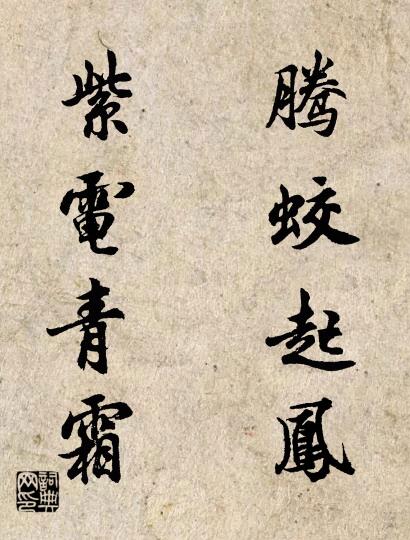 騰蛟起鳳
紫電青霜
詞典網印